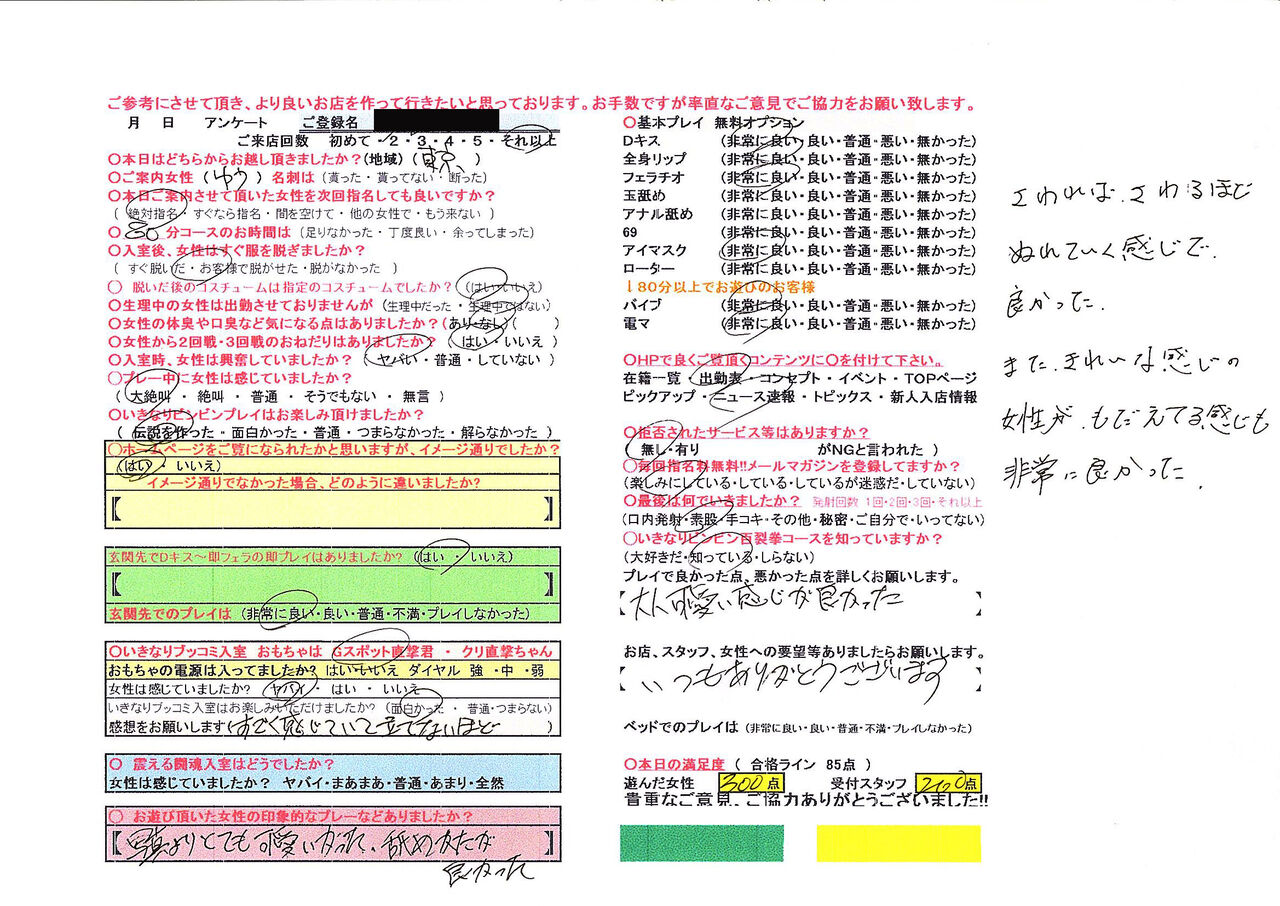 ご参考にさせて頂き、より良いお店を作って行きたいと思っております。お手数ですが率直なご意見でご協力をお願い致します。
月 日 アンケート ご登録名
ご来店回数 初めて・2・3・4・5・それ以上
〇本日はどちらからお越し頂きましたか?(地域)(東京)
〇ご案内女性(ゆう)名刺は(貰った・貰ってない・断った)
〇本日ご案内させて頂いた女性を次回指名しても良いですか?
(絶対指名・すぐなら指名・間を空けて・他の女性で・もう来ない)
〇80分コースのお時間は(足りなかった・丁度良い・余ってしまった)
〇入室後、女性はすぐ服を脱ぎましたか?
(すぐ脱いだ・お客様で脱がせた・脱がなかった)
〇 脱いだ後のコスチュームは指定のコスチュームでしたか?(はい・いいえ)
〇生理中の女性は出勤させておりませんが(生理中だった・生理中ではない)
〇女性の体臭や口臭など気になる点はありましたか?(あり・なし)( )
〇女性から2回戦・3回戦のおねだりはありましたか?(はい・いいえ)
〇入室時、女性は興奮していましたか?(ヤバい・普通・していない)
〇プレー中に女性は感じていましたか?
(大絶叫・絶叫・普通・そうでもない・無言)
〇いきなりビンビンプレイはお楽しみ頂けましたか?
(伝説を作った・面白かった・普通・つまらなかった・解らなかった)
〇ホームページをご覧になられたかと思いますが、イメージ通りでしたか?
(はい・いいえ)
イメージ通りでなかった場合、どのように違いましたか?
【 】
玄関先でDキス~即フェラの即プレイはありましたか?(はい・いいえ)
【 】
玄関先でのプレイは(非常に良い・良い・普通・不満・プレイしなかった)
〇いきなりブッコミ入室 おもちゃは Gスポット直撃君・クリ直撃ちゃん
おもちゃの電源は入ってましたか? はい・いいえ ダイヤル 強・中・弱
女性は感じていましたか? ヤバイ・はい・いいえ
いきなりブッコミ入室はお楽しみいただけましたか?(面白かった・普通・つまらない)
感想をお願いします(すごく感じていて立てないほど)
〇 震える闘魂入室はどうでしたか?
女性は感じていましたか? ヤバイ・まあまあ・普通・あまり・全然
〇 お遊び頂いた女性の印象的なプレーなどありましたか?
【写真よりとても可愛いかった、舐めかたが】
良かった
〇基本プレイ 無料オプション
Dキス (非常に良い・良い・普通・悪い・無かった)
全身リップ (非常に良い・良い・普通・悪い・無かった)
フェラチオ (非常に良い・良い・普通・悪い・無かった)
玉舐め (非常に良い・良い・普通・悪い・無かった)
アナル舐め (非常に良い・良い・普通・悪い・無かった)
69 (非常に良い・良い・普通・悪い・無かった)
アイマスク (非常に良い・良い・普通・悪い・無かった)
ローター (非常に良い・良い・普通・悪い・無かった)
↓80分以上でお遊びのお客様
バイブ (非常に良い・良い・普通・悪い・無かった)
電マ (非常に良い・良い・普通・悪い・無かった)
〇HPで良くご覧頂くコンテンツに〇を付けて下さい。
在籍一覧・出勤表・コンセプト・イベント・TOPページ
ピックアップ・ニュース速報・トピックス・新人入店情報
〇拒否されたサービス等はありますか?
(無し・有り がNGと言われた)
〇毎回指名料無料!!メールマガジンを登録してますか?
(楽しみにしている・している・しているが迷惑だ・していない)
〇最後は何でいきましたか? 発射回数 1回・2回・3回・それ以上
(口内発射・素股・手コキ・その他・秘密・ご自分で・いってない)
〇いきなりビンビン百裂拳コースを知っていますか?
(大好きだ・知っている・しらない)
プレイで良かった点、悪かった点を詳しくお願いします。
【大人可愛い感じが良かった】
お店、スタッフ、女性への要望等ありましたらお願いします。
【いつもありがとうございます】
ベッドでのプレイは(非常に良い・良い・普通・不満・プレイしなかった)
〇本日の満足度(合格ライン 85点)
遊んだ女性 300点 受付スタッフ 200点
貴重なご意見、ご協力ありがとうございました!!
さわれば、さわるほど
ぬれていく感じで、
良かった.
また、きれいな感じの
女性が、もだえてる感じも
非常に良かった.